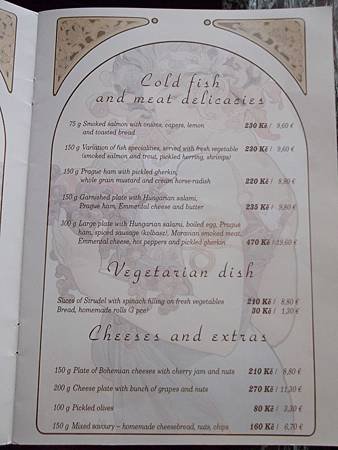 Cold fish
and meat delicacies
75 g Smoked salmon with onions, capers, lemon
and toasted bread 230 Kč / 9,60 €
150 g Variation of fish specialities, served with fresh vegetable 230 Kč / 9,60 €
(smoked salmon and trout, pickled herring, shrimps)
150 g Prague ham with pickled gherkin,
whole grain mustard and cream horse-radish 220 Kč / 9,80 €
150 g Garnished plate with Hungarian salami,
Prague ham, Emmental cheese and butter 235 Kč / 9,80 €
300 g Large plate with Hungarian salami, boiled egg, Prague
ham, spiced sausage (kolbasz), Moranian smoked meat,
Emmental cheese, hot peppers and pickled gherkin 470 Kč / 19,60 €
Vegetarian dish
Slices of Strudel with spinach filling on fresh vegetables 210 Kč / 8,80 €
Bread, homemade rolls (3 pcs) 30 Kč / 1,30 €
Cheeses and extras
150 g Plate of Bohemian cheeses with cherry jam and nuts 210 Kč / 8,80 €
200 g Cheese plate with bunch of grapes and nuts 270 Kč / 11,30 €
100 g Pickled olives 80 Kč / 3,30 €
150 g Mixed savoury – homemade cheesebread, nuts, chips 160 Kč / 6,70 €